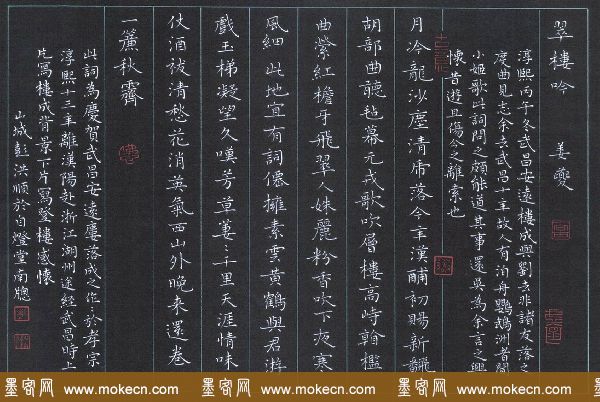 翠樓吟 姜夔
淳熙丙午冬武昌安遠樓成與劉去非諸友落之
度曲見志余去武昌十年故人有泊舟鸚鵡洲者聞
小姬歌此詞問之頗能道其事還吳為余言之興
懷昔遊且傷今之離索也
月冷龍沙塵清虎落今年漢酺初賜新翻
胡部曲聽氈幕元戎歌吹層樓高峙看檻
曲縈紅檐牙飛翠人姝麗粉香吹下夜寒
風細此地宜有詞僊擁素雲黃鶴與君遊
戲玉梯凝望久嘆芳草萋〻千里天涯情味
仗酒祓清愁花消英氣西山外晚來還卷
一簾秋霽
此詞為慶賀武昌安遠樓落成之作於孝宗
淳熙十三年離漢陽赴浙江湖州途經武昌時上
片寫樓成背景下片寫登樓感懷
山城彭洪順於白燈堂南牕
墨客网 www.mokecn.com 墨客网 www.mokecn.com 墨客网 www.mokecn.com